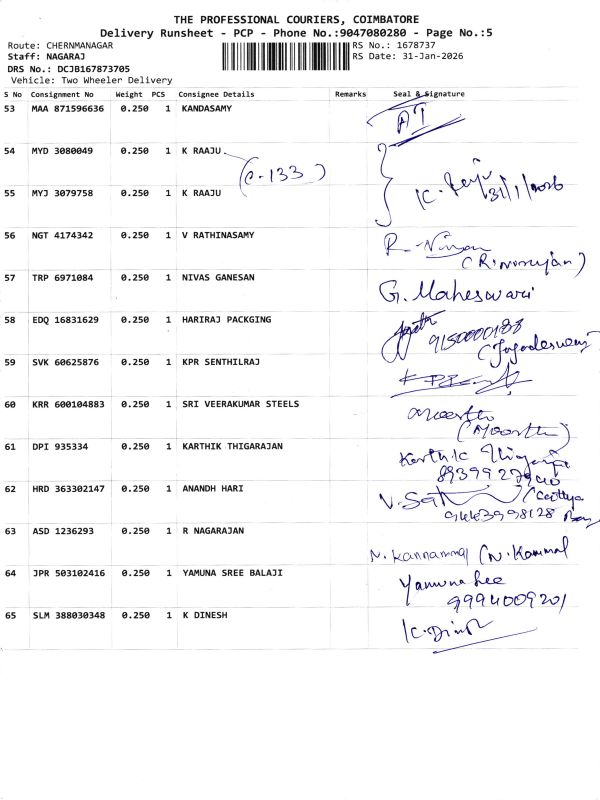 THE PROFESSIONAL COURIERS, COIMBATORE
Delivery Runsheet - PCP - Phone No.:9047080280 - Page No.:5
Route: CHERNMANAGAR RS No.: 1678737
Staff: NAGARAJ RS Date: 31-Jan-2026
DRS No.: DCJB167873705
Vehicle: Two Wheeler Delivery
S No Consignment No Weight PCS Consignee Details Remarks Seal & Signature
53 MAA 871596636 0.250 1 KANDASAMY
54 MYD 3080049 0.250 1 K RAAJU
55 MYJ 3079758 0.250 1 K RAAJU
31/1/2026
56 NGT 4174342 0.250 1 V RATHINASAMY
57 TRP 6971084 0.250 1 NIVAS GANESAN
G. Maheswari
58 EDQ 16831629 0.250 1 HARIRAJ PACKGING
59 SVK 60625876 0.250 1 KPR SENTHILRAJ
60 KRR 600104883 0.250 1 SRI VEERAKUMAR STEELS
(Moorthi)
61 DPI 935334 0.250 1 KARTHIK THIGARAJAN
Karthik
62 HRD 363302147 0.250 1 ANANDH HARI
63 ASD 1236293 0.250 1 R NAGARAJAN
N. Kannammal
64 JPR 503102416 0.250 1 YAMUNA SREE BALAJI
9994009201
65 SLM 388030348 0.250 1 K DINESH
K. Dinesh